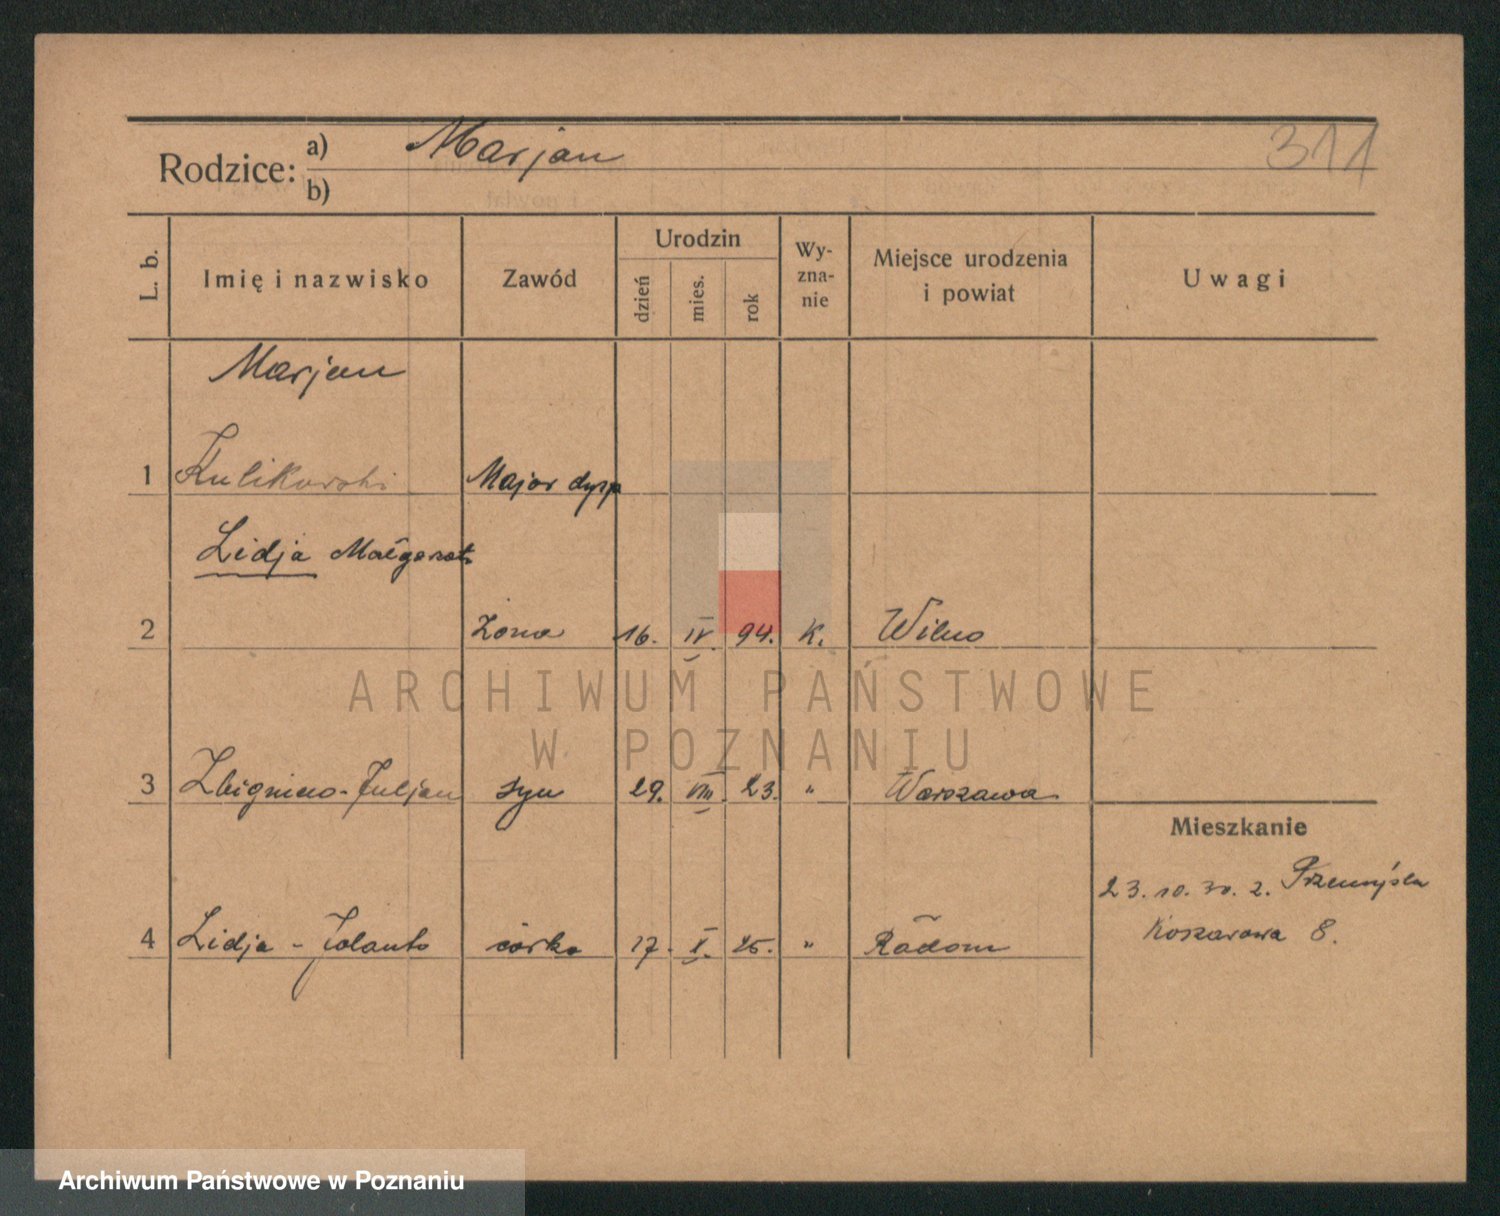 Rodzice: a) Marjan 311
b)
L. b. Imię i nazwisko Zawód Urodzin dzień mies. rok Wy-zna-nie Miejsce urodzenia i powiat Uwagi
Marjan
1 Kulikowski Major dypl
Lidja Małgorzata
2 żona 16. IV. 94. K. Wilno
ARCHIWUM PAŃSTWOWE
W POZNANIU
3 Zbigniew-Juljan syn 29. VIII. 23. " Warszawa
Mieszkanie
23.10.30. z. Przemyśla
4 Lidja - Jolanta córka 17. X. 25. " Radom
Koszarowa 8.
Archiwum Państwowe w Poznaniu